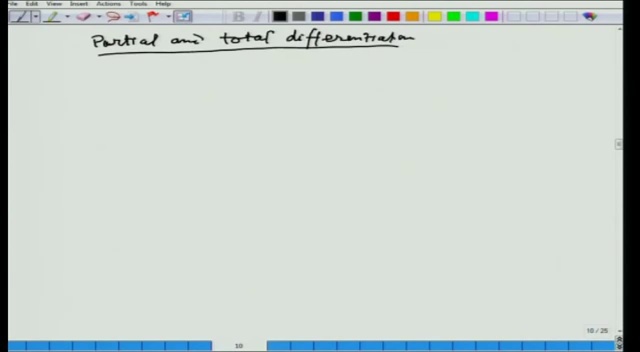 File Edit View Insert Actions Tools Help
Partial and total differentiation
10 / 25
10